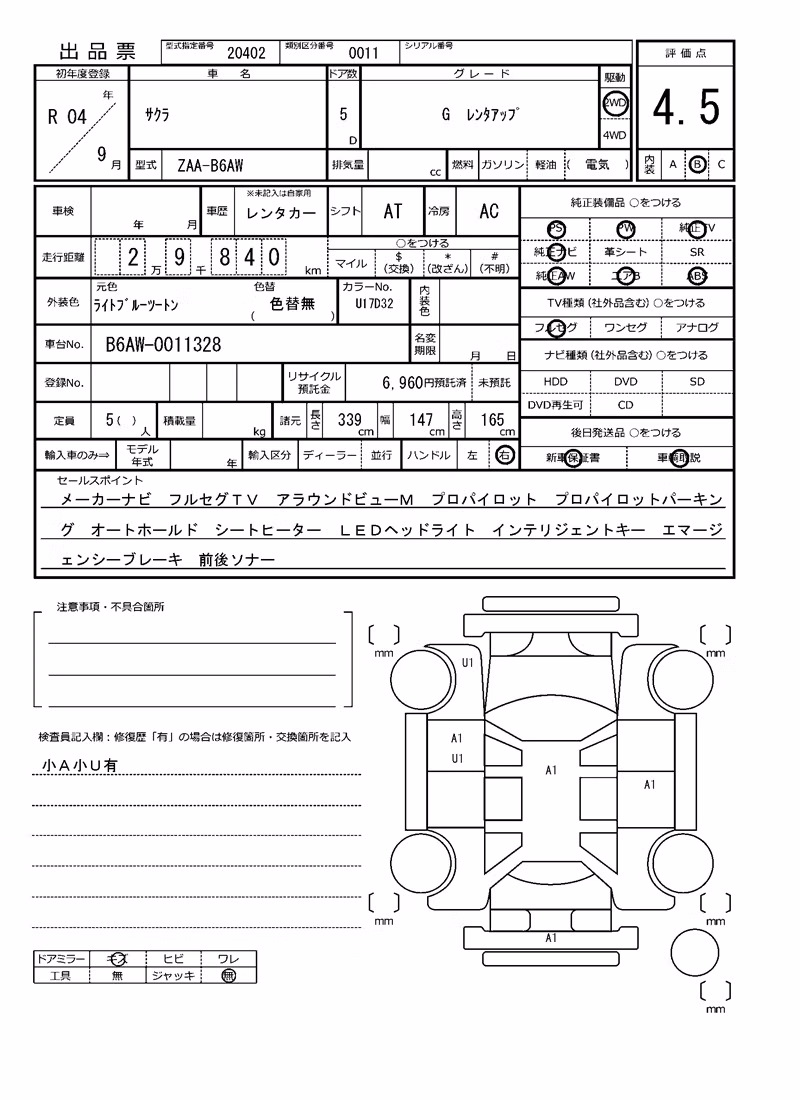 出品票 型式指定番号 20402 類別区分番号 0011 シリアル番号
評価点
4.5
内装 A B C
初年度登録 車名 ドア数 グレード 駆動
R 04 年 9 月
サクラ 5 D G レンタアップ 2WD
4WD
型式 ZAA-B6AW 排気量 cc 燃料 ガソリン 軽油 ( 電気 )
車検 年 月 車歴 ※未記入は自家用 レンタカー シフト AT 冷房 AC
走行距離 2 万 9 千 8 4 0 km
○をつける
マイル $ (交換) * (改ざん) # (不明)
外装色 元色 ライトブルーツートン 色替 ( 色替無 ) カラーNo. U17D32 内装色
車台No. B6AW-0011328 名変期限 月 日
登録No. リサイクル預託金 6,960円預託済 未預託
定員 5( ) 人 積載量 kg 諸元 長さ 339 cm 幅 147 cm 高さ 165 cm
輸入車のみ⇒ モデル年式 年 輸入区分 ディーラー 並行 ハンドル 左 右
純正装備品 ○をつける
PS PW 純正TV
純正ナビ 革シート SR
純正AW エアB ABS
TV種類(社外品含む)○をつける
フルセグ ワンセグ アナログ
ナビ種類(社外品含む)○をつける
HDD DVD SD
DVD再生可 CD
後日発送品 ○をつける
新車保証書 車輌取説
セールスポイント
メーカーナビ フルセグTV アラウンドビューM プロパイロット プロパイロットパーキン
グ オートホールド シートヒーター LEDヘッドライト インテリジェントキー エマージ
ェンシーブレーキ 前後ソナー
注意事項・不具合箇所
検査員記入欄:修復歴「有」の場合は修復箇所・交換箇所を記入
小A小U有
ドアミラー キズ ヒビ ワレ
工具 無 ジャッキ 無
mm
mm
U1
A1
U1
A1
A1
mm
mm
A1
mm